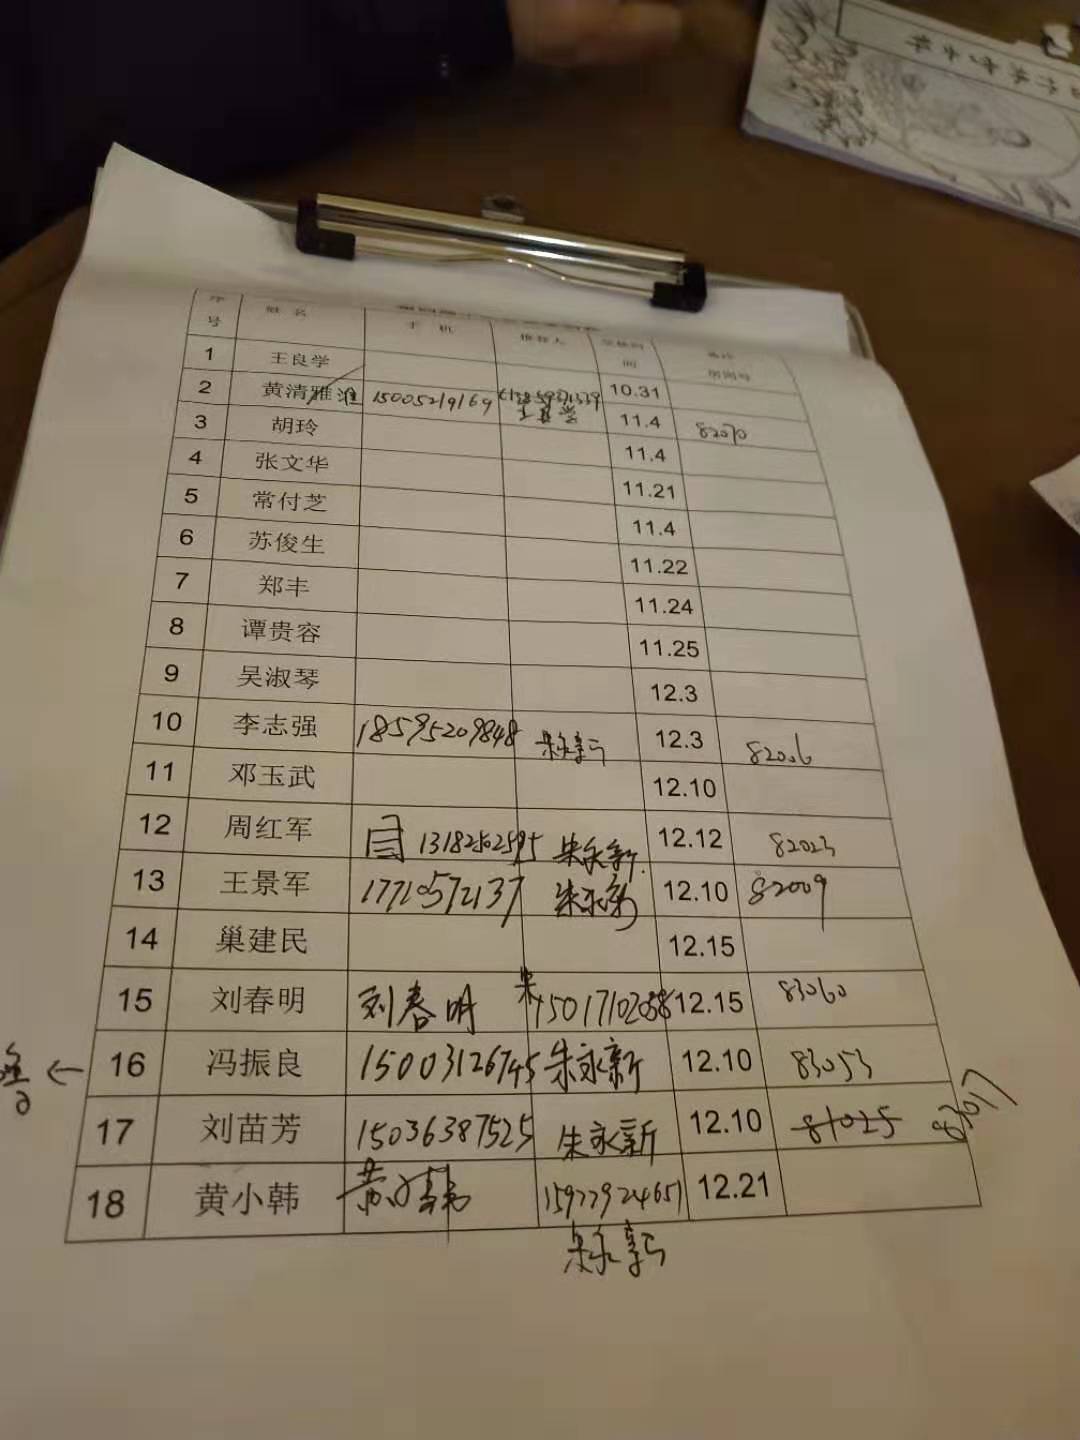 序号 姓名 手机 推荐人
1 王良学 10.31
2 黄清雅 淮 15005219169 11.4 82070
3 胡玲 11.4
4 张文华 11.21
5 常付芝 11.4
6 苏俊生 11.22
7 郑丰 11.24
8 谭贵容 11.25
9 吴淑琴 12.3
10 李志强 18595209848 朱永新 12.3 82006
11 邓玉武 12.10
12 周红军 朱永新 12.12 82023
13 王景军 17710572137 朱永新 12.10 82009
14 巢建民 12.15
15 刘春明 刘春明 朱 12.15 83060
16 冯振良 15003126745 朱永新 12.10 83053
17 刘苗芳 15036387525 朱永新 12.10 81025 83017
18 黄小韩 黄小韩 15977924651 12.21
朱永新